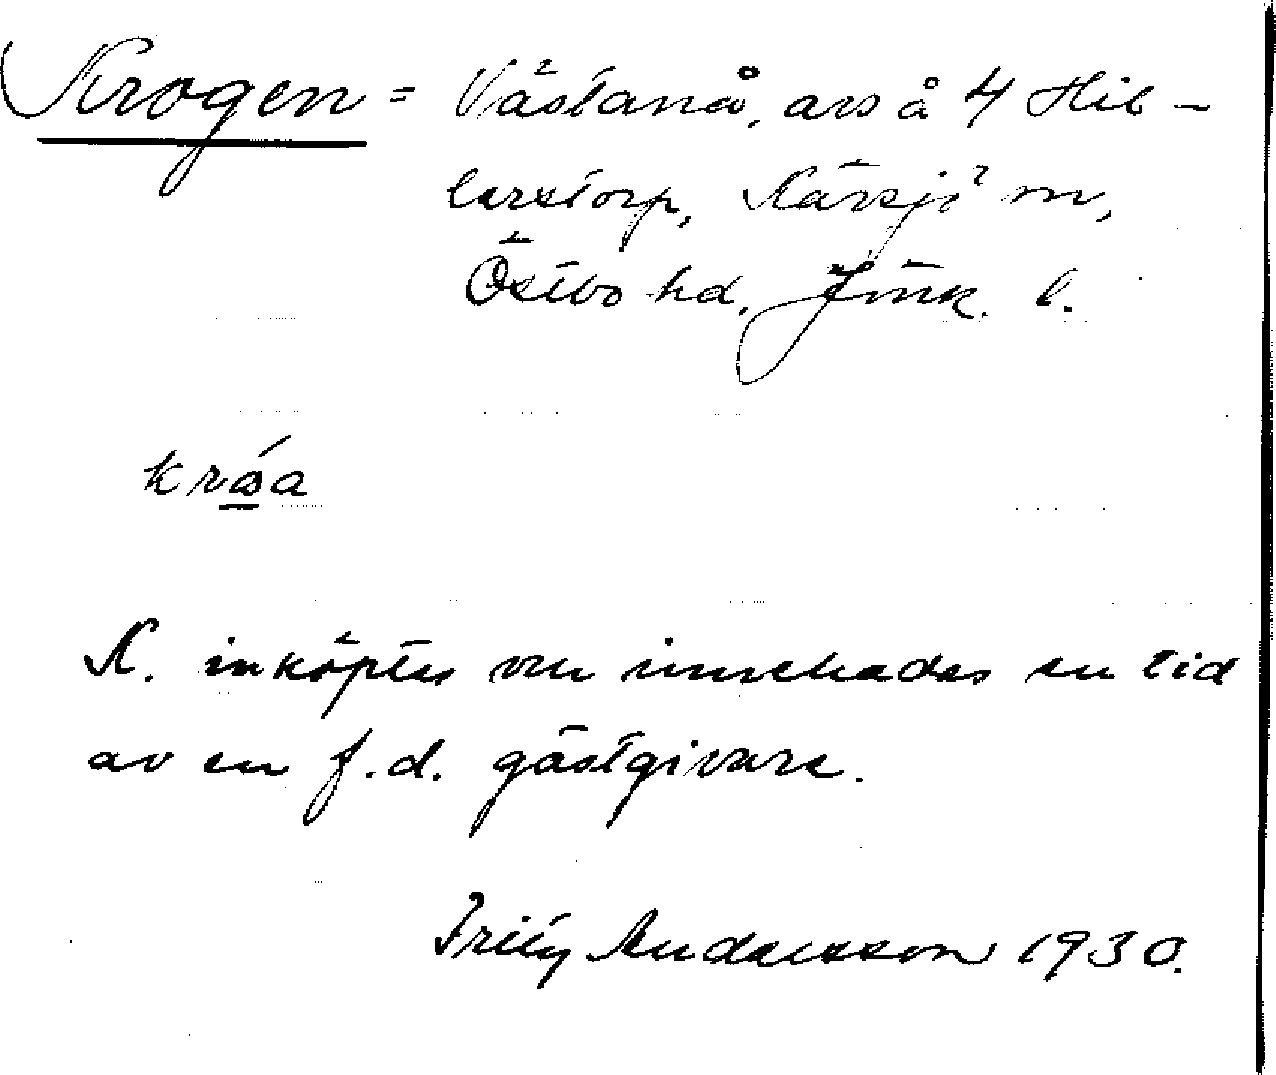 Krogen = Västanå, avs å 4 Hil-
lerstorp, Kärsjö sn,
Östbo hd, Jönk. l.
króa
K. inköptes o. innehades en tid
av en f.d. gästgivare.
Andersson 1930.